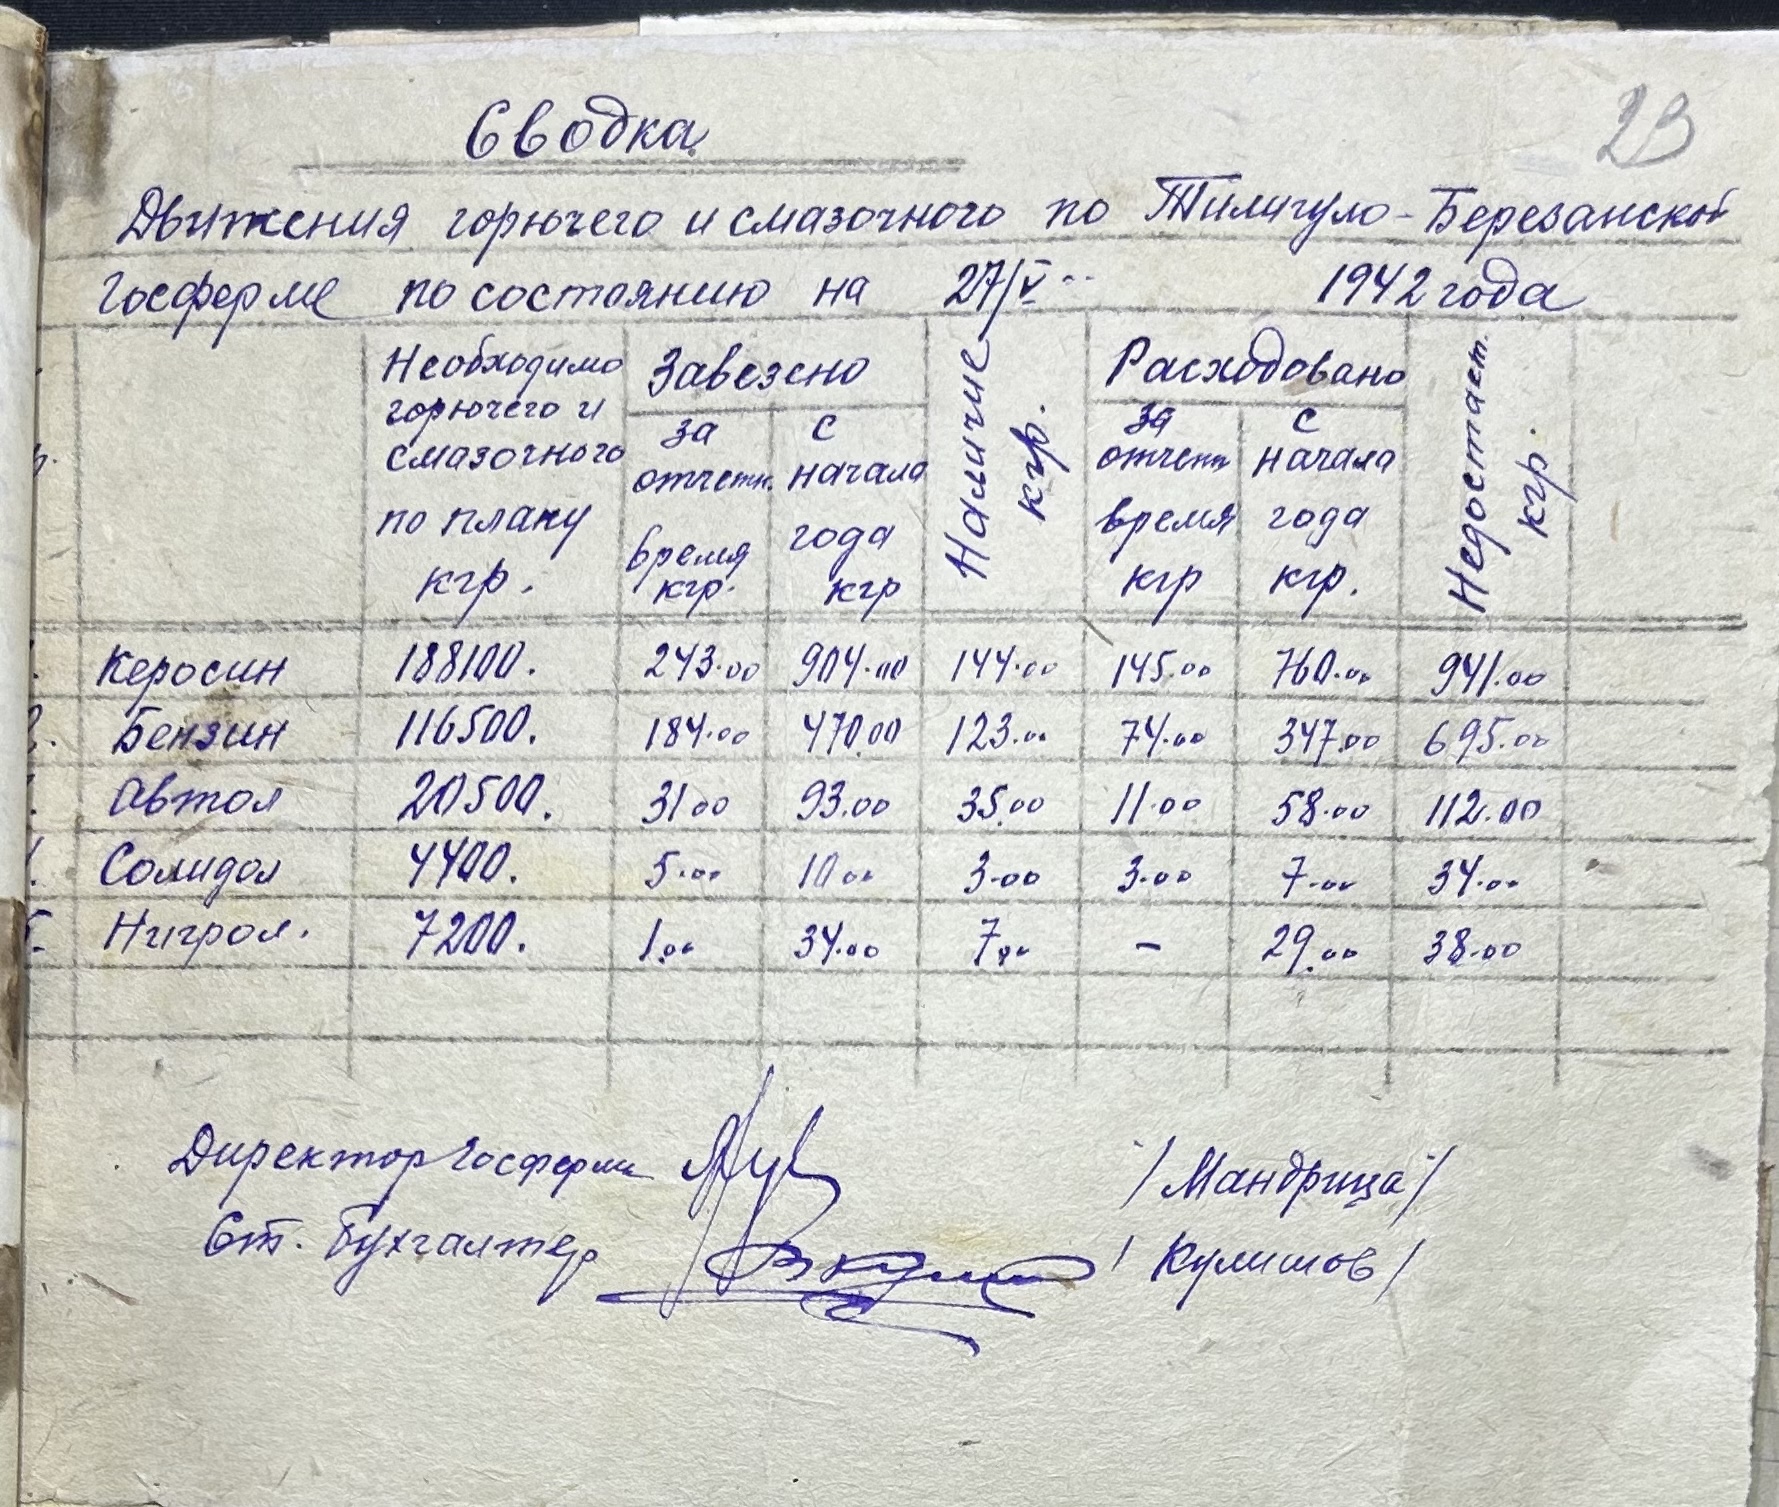 23
Сводка
Движения горючего и смазочного по Тилигуло-Березанской
Госферме по состоянию на 27/V 1942 года
Необходимо горючего и смазочного по плану кгр. | Завезено | Наличие кгр. | Расходовано | Недостает. кгр.
за отчетн. время кгр. | с начала года кгр | за отчетн время кгр | с начала года кгр.
Керосин 188100. 243.00 904.00 144.00 145.00 760.00 941.00
2. Бензин 116500. 184.00 470.00 123.00 74.00 347.00 695.00
Автол 20500. 31 00 93.00 35.00 11.00 58.00 112.00
Солидол 4400. 5.00 10 00 3.00 3.00 7.00 34.00
5. Нигрол. 7200. 1.00 34.00 7.00 - 29.00 38.00
Директор Госфермы /Мандрица/
Ст. Бухгалтер /Кулишов/